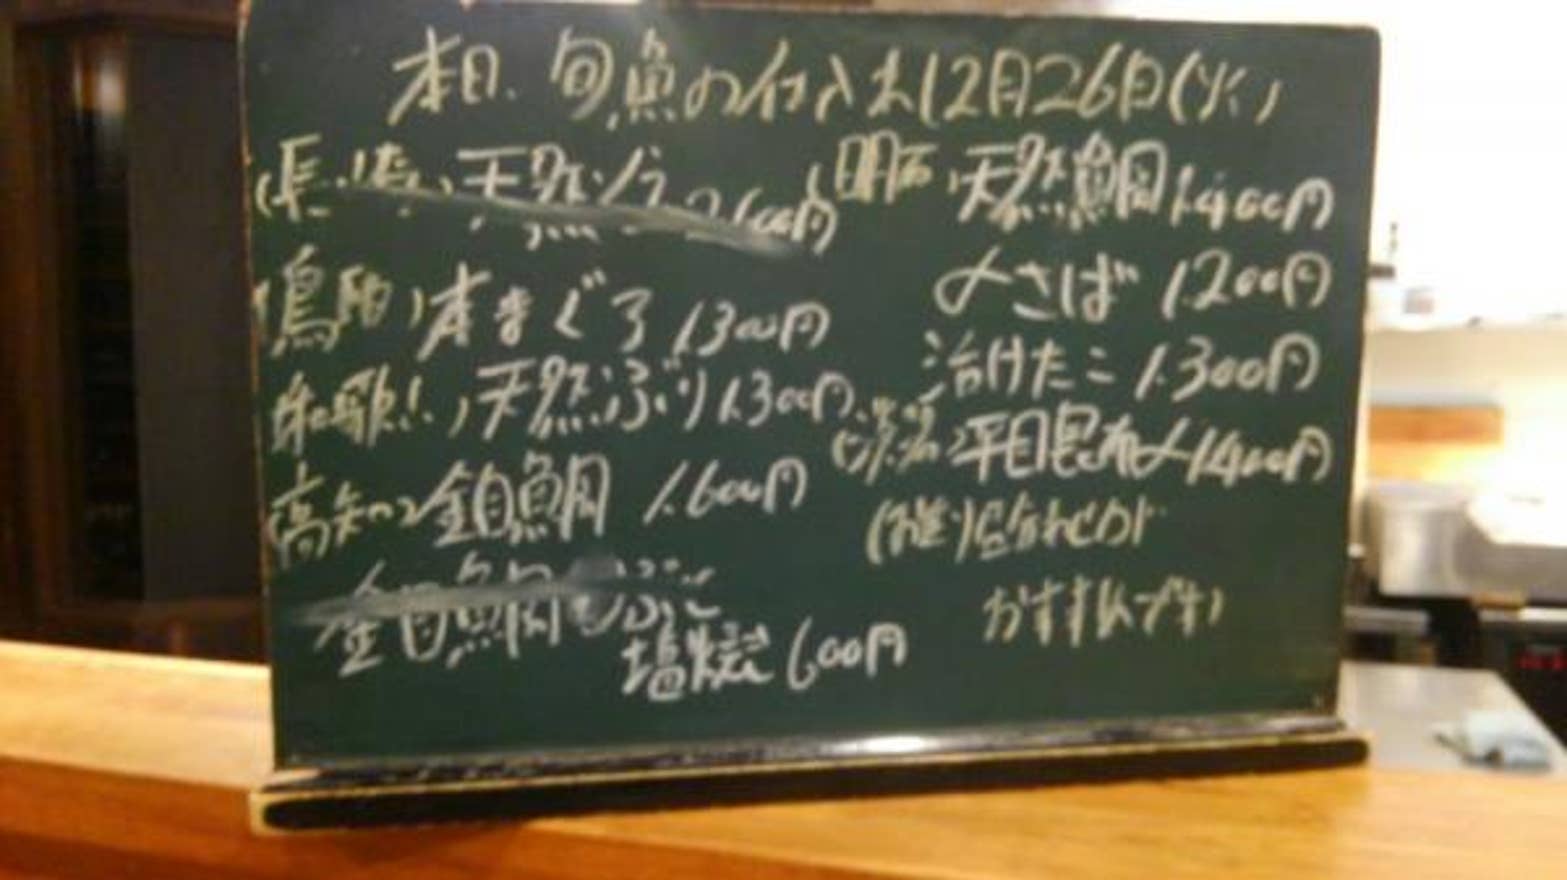 本日、旬魚の仕入れ12月26日(火)
(長崎)天然ぶり 2600円
(鳥取)本まぐろ 1300円
(和歌山)天然ぶり 1.300円
(高知)金目鯛 1.600円
金目鯛のかぶと
塩焼 600円
(明石)天然鯛 1.400円
〆さば 1.200円
活けたこ 1.300円
平目昆布〆 1400円
盛り合わせが
おすすめです)